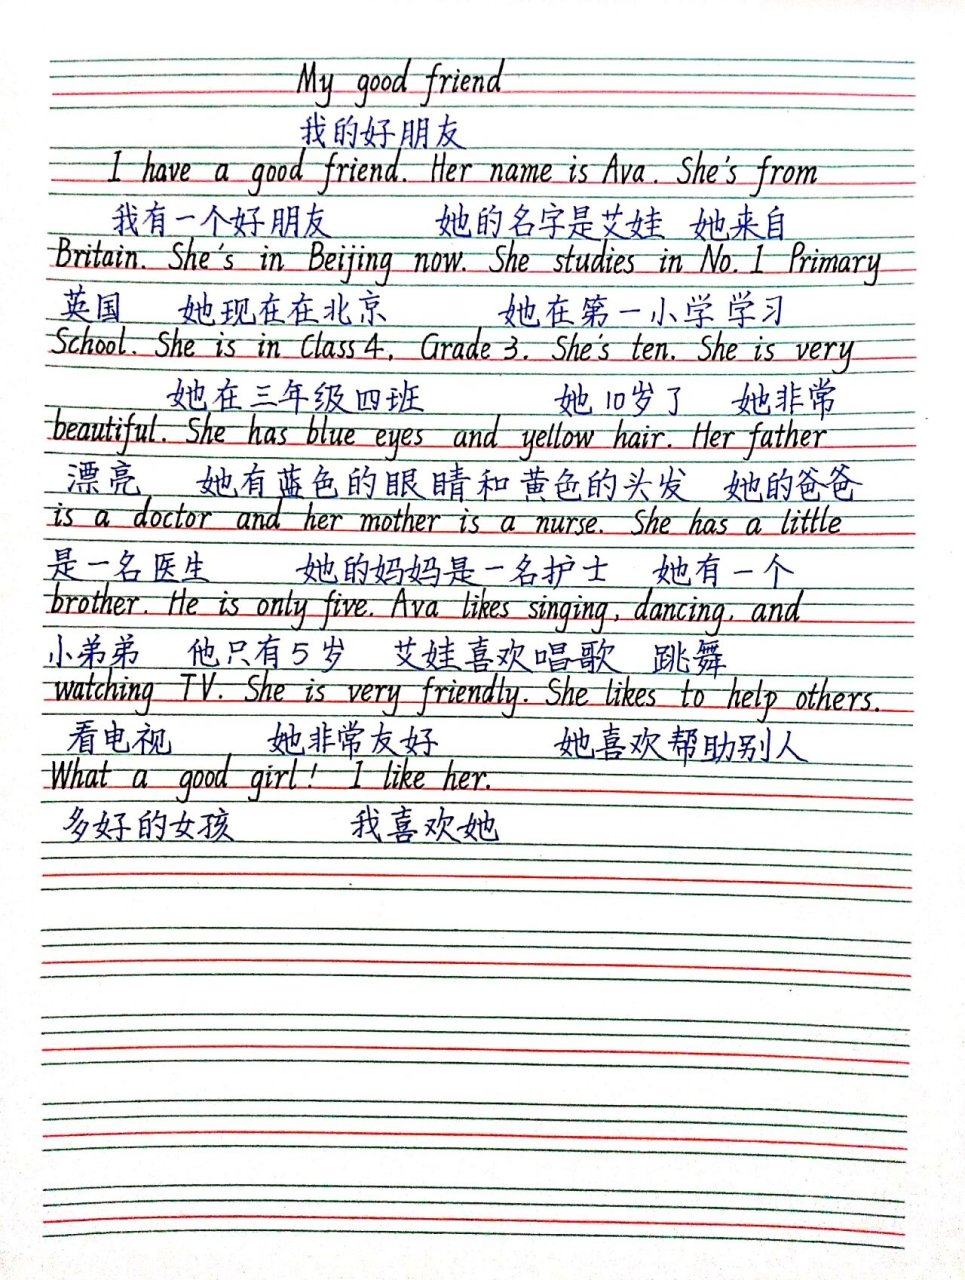 My good friend
我的好朋友
I have a good friend. Her name is Ava. She's from
我有一个好朋友 她的名字是艾娃 她来自
Britain. She's in Beijing now. She studies in No. 1 Primary
英国 她现在在北京 她在第一小学学习
School. She is in Class 4, Grade 3. She's ten. She is very
她在三年级四班 她10岁了 她非常
beautiful. She has blue eyes and yellow hair. Her father
漂亮 她有蓝色的眼睛和黄色的头发 她的爸爸
is a doctor and her mother is a nurse. She has a little
是一名医生 她的妈妈是一名护士 她有一个
brother. He is only five. Ava likes singing, dancing, and
小弟弟 他只有5岁 艾娃喜欢唱歌 跳舞
watching TV. She is very friendly. She likes to help others.
看电视 她非常友好 她喜欢帮助别人
What a good girl! I like her.
多好的女孩 我喜欢她